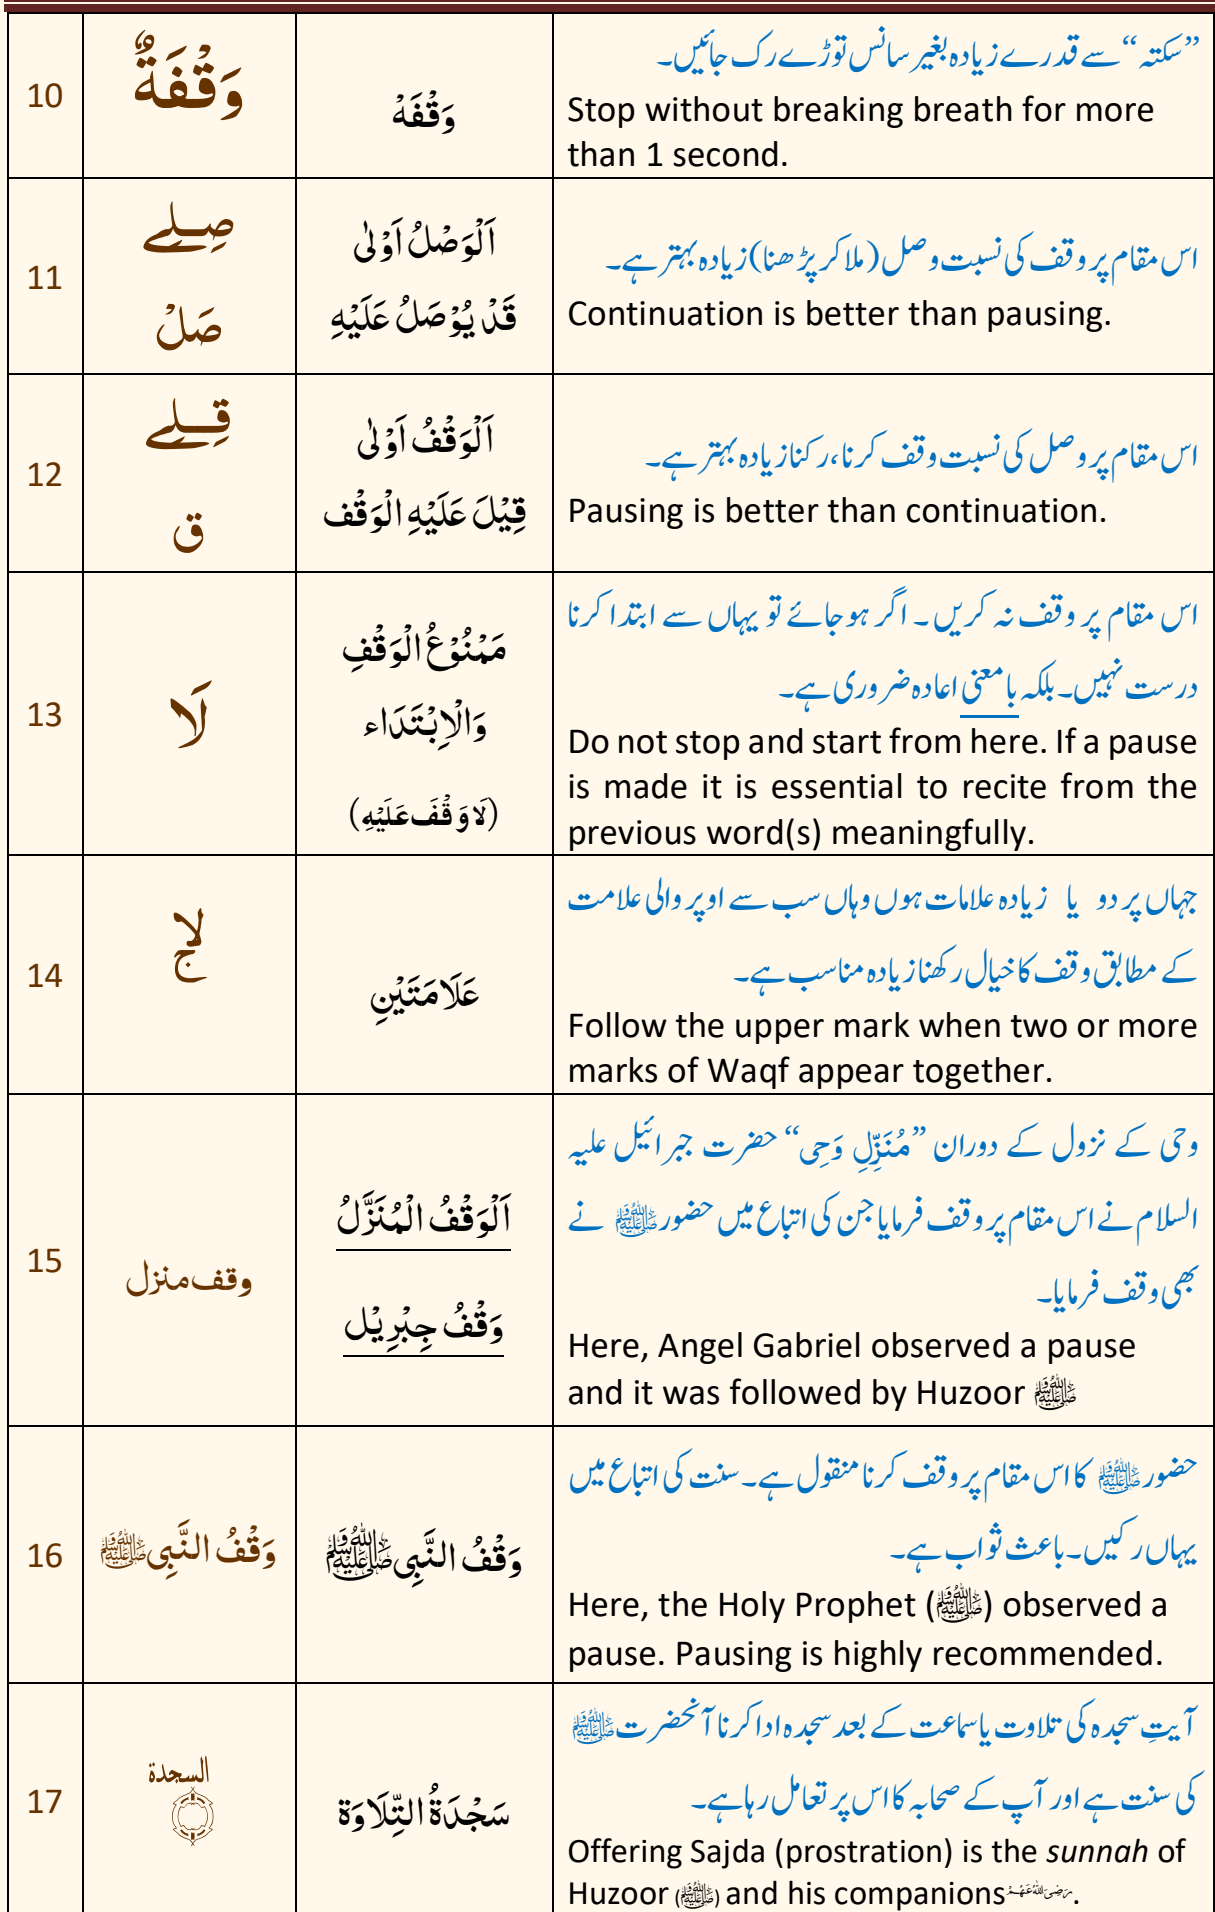 10
وَقْفَةٌ
وَقْفَهْ
”سکتہ“ سے قدرے زیادہ بغیر سانس توڑے رک جائیں۔
Stop without breaking breath for more
than 1 second.
11
صِلے
صَلْ
اَلْوَصْلُ اَوْلٰی
قَدْ یُوْصَلُ عَلَیْہِ
اس مقام پر وقف کی نسبت وصل (ملا کر پڑھنا) زیادہ بہتر ہے۔
Continuation is better than pausing.
12
قِلے
ق
اَلْوَقْفُ اَوْلٰی
قِیْلَ عَلَیْہِ الْوَقْف
اس مقام پر وصل کی نسبت وقف کرنا، رکنا زیادہ بہتر ہے۔
Pausing is better than continuation.
13
لَا
مَمْنُوْعُ الْوَقْفِ
وَالْاِبْتَدَاء
(لَا وَقْفَ عَلَیْہِ)
اس مقام پر وقف نہ کریں ۔ اگر ہو جائے تو یہاں سے ابتدا کرنا
درست نہیں۔ بلکہ بامعنی اعادہ ضروری ہے۔
Do not stop and start from here. If a pause
is made it is essential to recite from the
previous word(s) meaningfully.
14
لا
ج
عَلَامَتَیْنِ
جہاں پر دو یا زیادہ علامات ہوں وہاں سب سے اوپر والی علامت
کے مطابق وقف کا خیال رکھنا زیادہ مناسب ہے۔
Follow the upper mark when two or more
marks of Waqf appear together.
15
وقف منزل
اَلْوَقْفُ الْمُنَزَّلُ
وَقْفُ جِبْرِیْل
وحی کے نزول کے دوران ”مُنَزِّلِ وَحِی“ حضرت جبرائیل علیہ
السلام نے اس مقام پر وقف فرمایا جن کی اتباع میں حضور ﷺ نے
بھی وقف فرمایا۔
Here, Angel Gabriel observed a pause
and it was followed by Huzoor ﷺ
16
وَقْفُ النَّبِی ﷺ
وَقْفُ النَّبِی ﷺ
حضور ﷺ کا اس مقام پر وقف کرنا منقول ہے۔ سنت کی اتباع میں
یہاں رکیں۔ باعث ثواب ہے۔
Here, the Holy Prophet (ﷺ) observed a
pause. Pausing is highly recommended.
17
السجدة
سَجْدَۃُ التِّلَاوَۃ
آیتِ سجدہ کی تلاوت یا سماعت کے بعد سجدہ ادا کرنا آنحضرت ﷺ
کی سنت ہے اور آپ کے صحابہ کا اس پر تعامل رہا ہے۔
Offering Sajda (prostration) is the sunnah of
Huzoor (ﷺ) and his companions رضی اللہ عنہم.